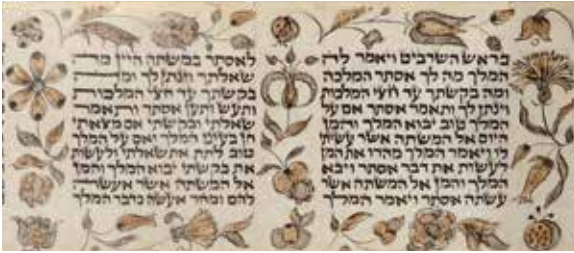 בראש השרביט ויאמר לה
המלך מה לך אסתר המלכה
ומה בקשתך עד חצי המלכות
וינתן לך ותאמר אסתר אם על
המלך טוב יבוא המלך והמן
היום אל המשתה אשר עשיתי
לו ויאמר המלך מהרו את המן
לעשות את דבר אסתר ויבא
המלך והמן אל המשתה אשר
עשתה אסתר ויאמר המלך
לאסתר במשתה היין מה
שאלתך וינתן לך ומה
בקשתך עד חצי המלכות
ותעש ותען אסתר ותאמר
שאלתי ובקשתי אם מצאתי
חן בעיני המלך ואם על המלך
טוב לתת את שאלתי ולעשות
את בקשתי יבוא המלך והמן
אל המשתה אשר אעשה
להם ומחר אעשה כדבר המלך